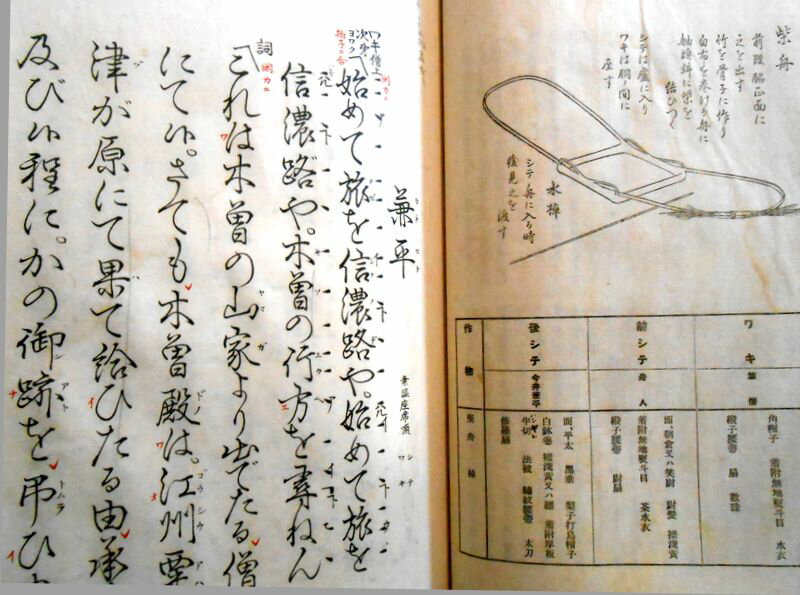 柴舟
前段脇正面に
之を出す
竹を骨子に作り
白布を巻ける舟に
舳艫錨に柴を
結びつく
シテは艫に入り
ワキは胴ノ間に
座す
水棹
シテ舟に入る時
後見之を
渡す
ワキ 旅僧 角帽子 着附無地熨斗目 水衣
緞子腰帯 扇 数珠
前シテ 舟人 面、朝倉又ハ笑尉 尉髪 襟浅黄
着附無地熨斗目 茶水衣
緞子腰帯 尉扇
後シテ 今井兼平 面平太 黒垂 梨子打烏帽子
白鉢巻 襟浅黄又ハ紺 着附厚板
半切 法被 縫紋腰帯 太刀
修羅扇
作物 柴舟 棹
兼平
カネヒラ
素謡座席順
シテ
ワキ
ワキ僧上
次第
ヨワク
拍子ニ合
始めて旅を信濃路や。始めて旅を
信濃路や。木曽の行方を尋ねん
詞 これは木曽の山家より出でたる僧
にて候。さても木曽殿は。江州粟
津が原にて果て給ひたる由承
及び候程に。かの御跡を弔ひ